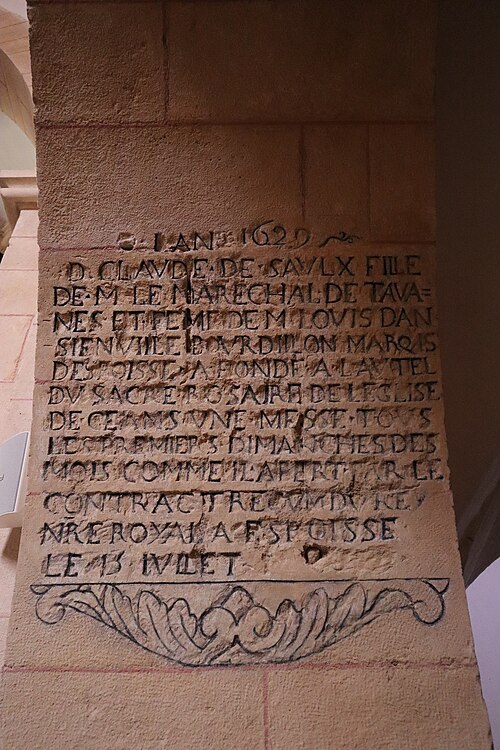 LAN 1629
D CLAVDE DE SAVLX FILLE
DE M LE MARECHAL DE TAVA=
NES ET FEME DE M LOVIS DAN
SIENVILLE BOVRDILLON MARQIS
DESPOISSE A FONDÉ A LAVTEL
DV SACRE ROSAIRE DE LEGLISE
DE CEANS VNE MESSE TOVS
LES PREMIERS DIMANCHES DES
MOIS COMME IL APERT PAR LE
CONTRACT RECV M DV RE
NRE ROYAL A ESPOISSE
LE 15 IVLLET